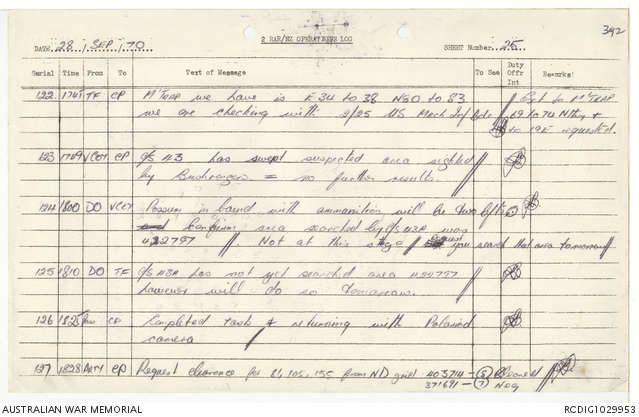 392
2 RAR/NZ OPERATIONS LOG
DATE 28 / SEP / 70 SHEET Number 25
Serial Time From To Text of Message To See Duty Offr Int Remarks
122 1745 TF CP M'Trap we have is E 34 to 38 N80 to 83 Ext to M'TRAP
we are checking with 2/25 US Mech Inf Bde 69 to 74 Nthg &
to 19E requested.
123 1749 VCOY CP C/S 43 has swept suspected area sighted
by Bushranger = no further results.
124 1800 DO VCOY Possum in bound with ammunition will be two lifts
Confirm area searched by C/S 43A was
422797 // Not at this stage / you search that area tomorrow //
125 1810 DO TF C/S 43A has not yet searched area 420797
however will do so tomorrow.
126 1825 CP Completed task & returning with Polaroid
camera
127 1828 ARTY CP Request clearance for 81, 105, 155 from ND grid 403714 - (5) Cleared
371691 - (7) Neg
AUSTRALIAN WAR MEMORIAL RCDIG1029953